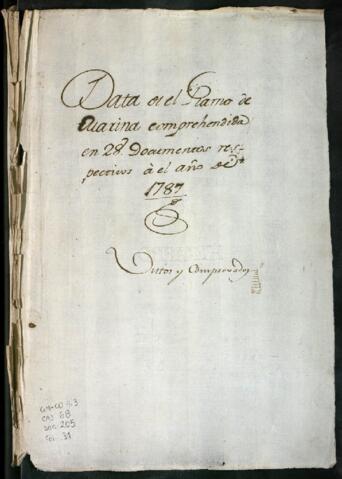 Data en el Ramo de
Marina comprehendida
en 28 Documentos res-
pectivos à el año de
1787
Vistos y Comprovados
CAJ 68
DOC 205
Fol. 31